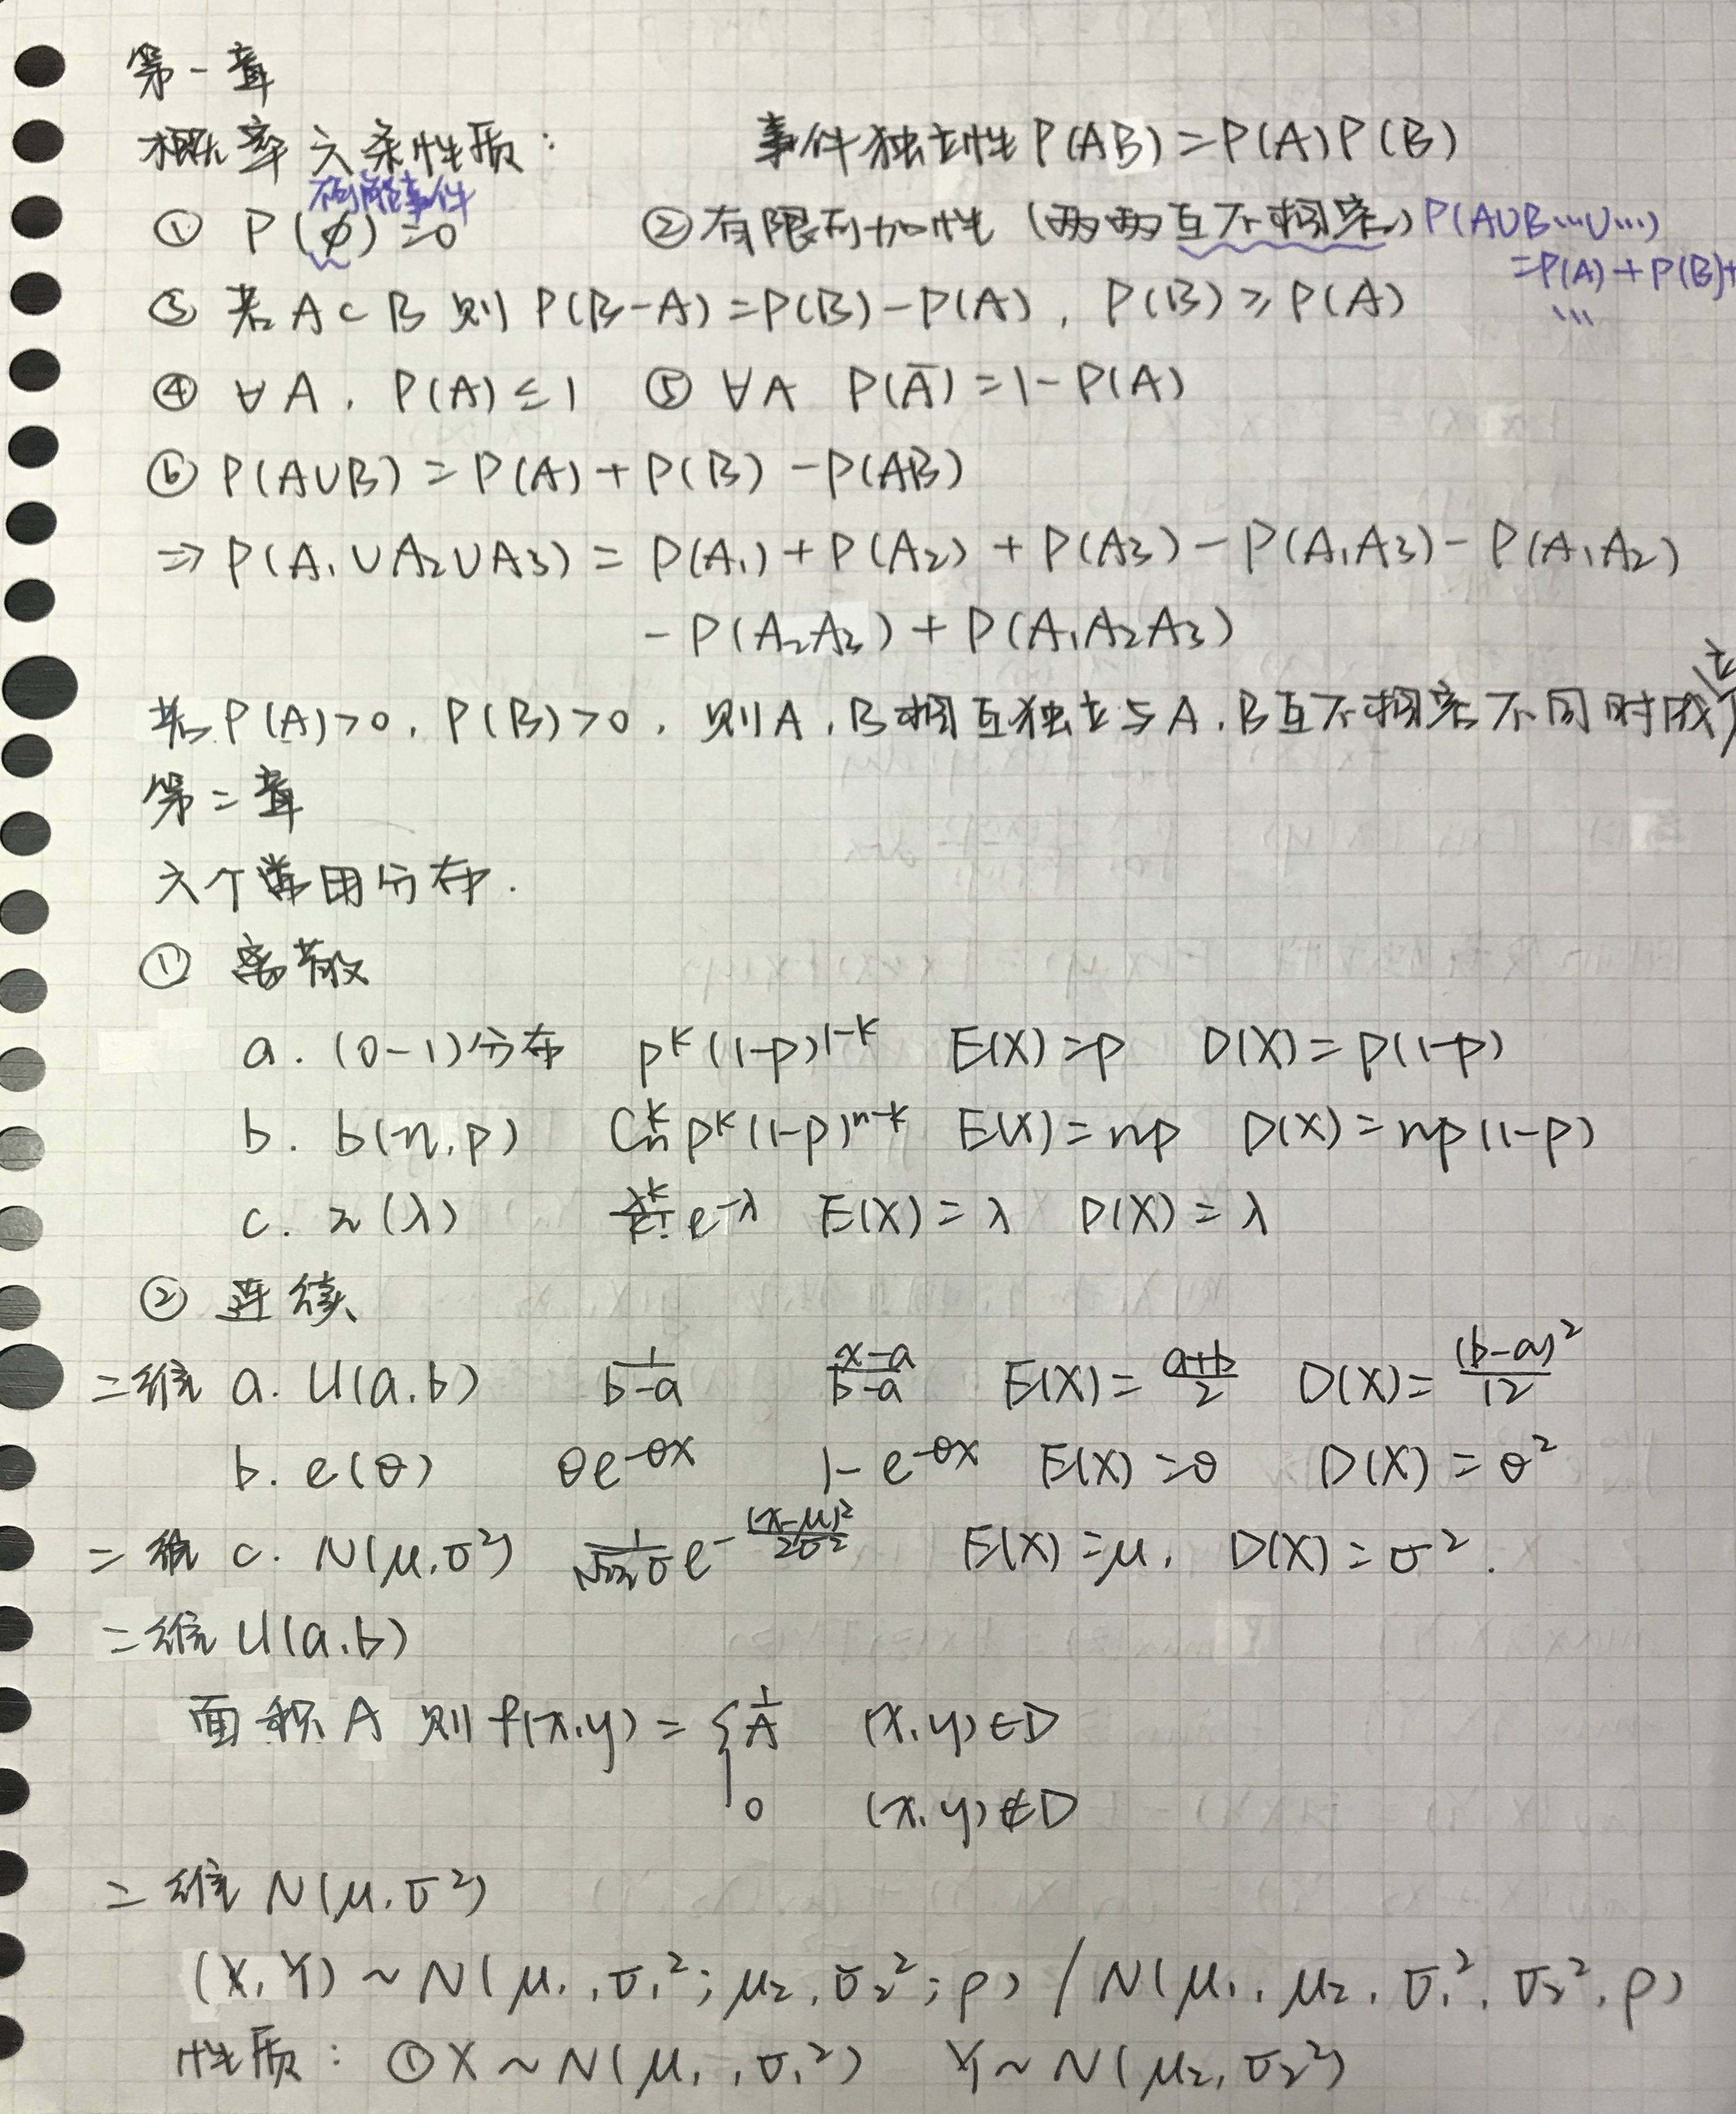 第一章
概率六条性质： 事件独立性 P(AB)=P(A)P(B)
不可能事件
① P(φ)=0 ②有限可加性（两两互不相容）P(A∪B…∪…)
=P(A)+P(B)+
…
③ 若 A⊂B 则 P(B-A)=P(B)-P(A), P(B)≥P(A)
④ ∀A, P(A)≤1 ⑤ ∀A P(Ā)=1-P(A)
⑥ P(A∪B)=P(A)+P(B)-P(AB)
⇒ P(A₁∪A₂∪A₃)=P(A₁)+P(A₂)+P(A₃)-P(A₁A₃)-P(A₁A₂)
-P(A₂A₃)+P(A₁A₂A₃)
若 P(A)>0, P(B)>0, 则A,B相互独立与A,B互不相容不同时成立
第二章
六个常用分布.
① 离散
a. (0-1)分布 pᵏ(1-p)¹⁻ᵏ E(X)=p D(X)=p(1-p)
b. b(n,p) Cₙᵏpᵏ(1-p)ⁿ⁻ᵏ E(X)=np D(X)=np(1-p)
c. π(λ) λᵏ/k! e^-λ E(X)=λ D(X)=λ
② 连续
二维 a. U(a,b) 1/(b-a) (x-a)/(b-a) E(X)=(a+b)/2 D(X)=(b-a)²/12
b. e(θ) θe^-θx 1-e^-θx E(X)=θ D(X)=θ²
二维 c. N(μ,σ²) 1/(√2π σ) e^-(x-μ)²/2σ² E(X)=μ, D(X)=σ².
二维 U(a,b)
面积A 则 f(x,y)={1/A (x,y)∈D
0 (x,y)∉D
二维 N(μ,σ²)
(X,Y)~N(μ₁,σ₁²;μ₂,σ₂²;ρ) / N(μ₁,μ₂,σ₁²,σ₂²,ρ)
性质：①X~N(μ₁,σ₁²) Y~N(μ₂,σ₂²)